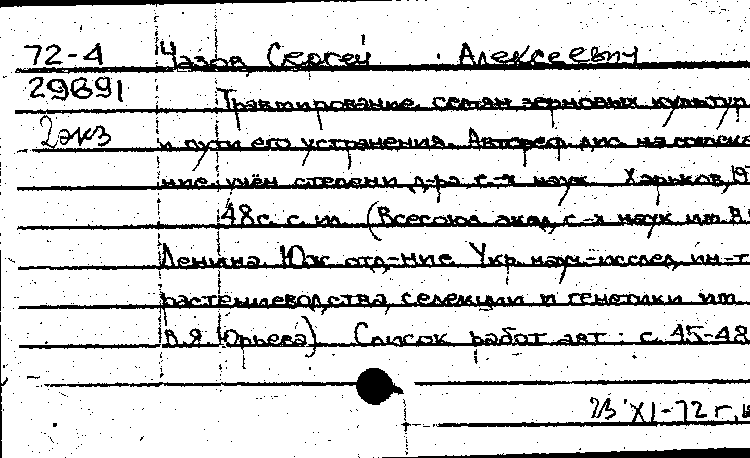 72-4 Чазов, Сергей Алексеевич
29691 Травмирование семян зерновых культур
2экз и пути его устранения. Автореф. дис. на соиска-
ние учен степени д-ра с.-х наук Харьков, 19
48с. с ил. (Всесоюз акад с-х наук им. В.
Ленина. Юж отд-ние Укр науч-исслед ин-т
растениеводства, селекции и генетики им.
В.Я Юрьева) Список работ авт: с 45-48
23 XI-72 г.